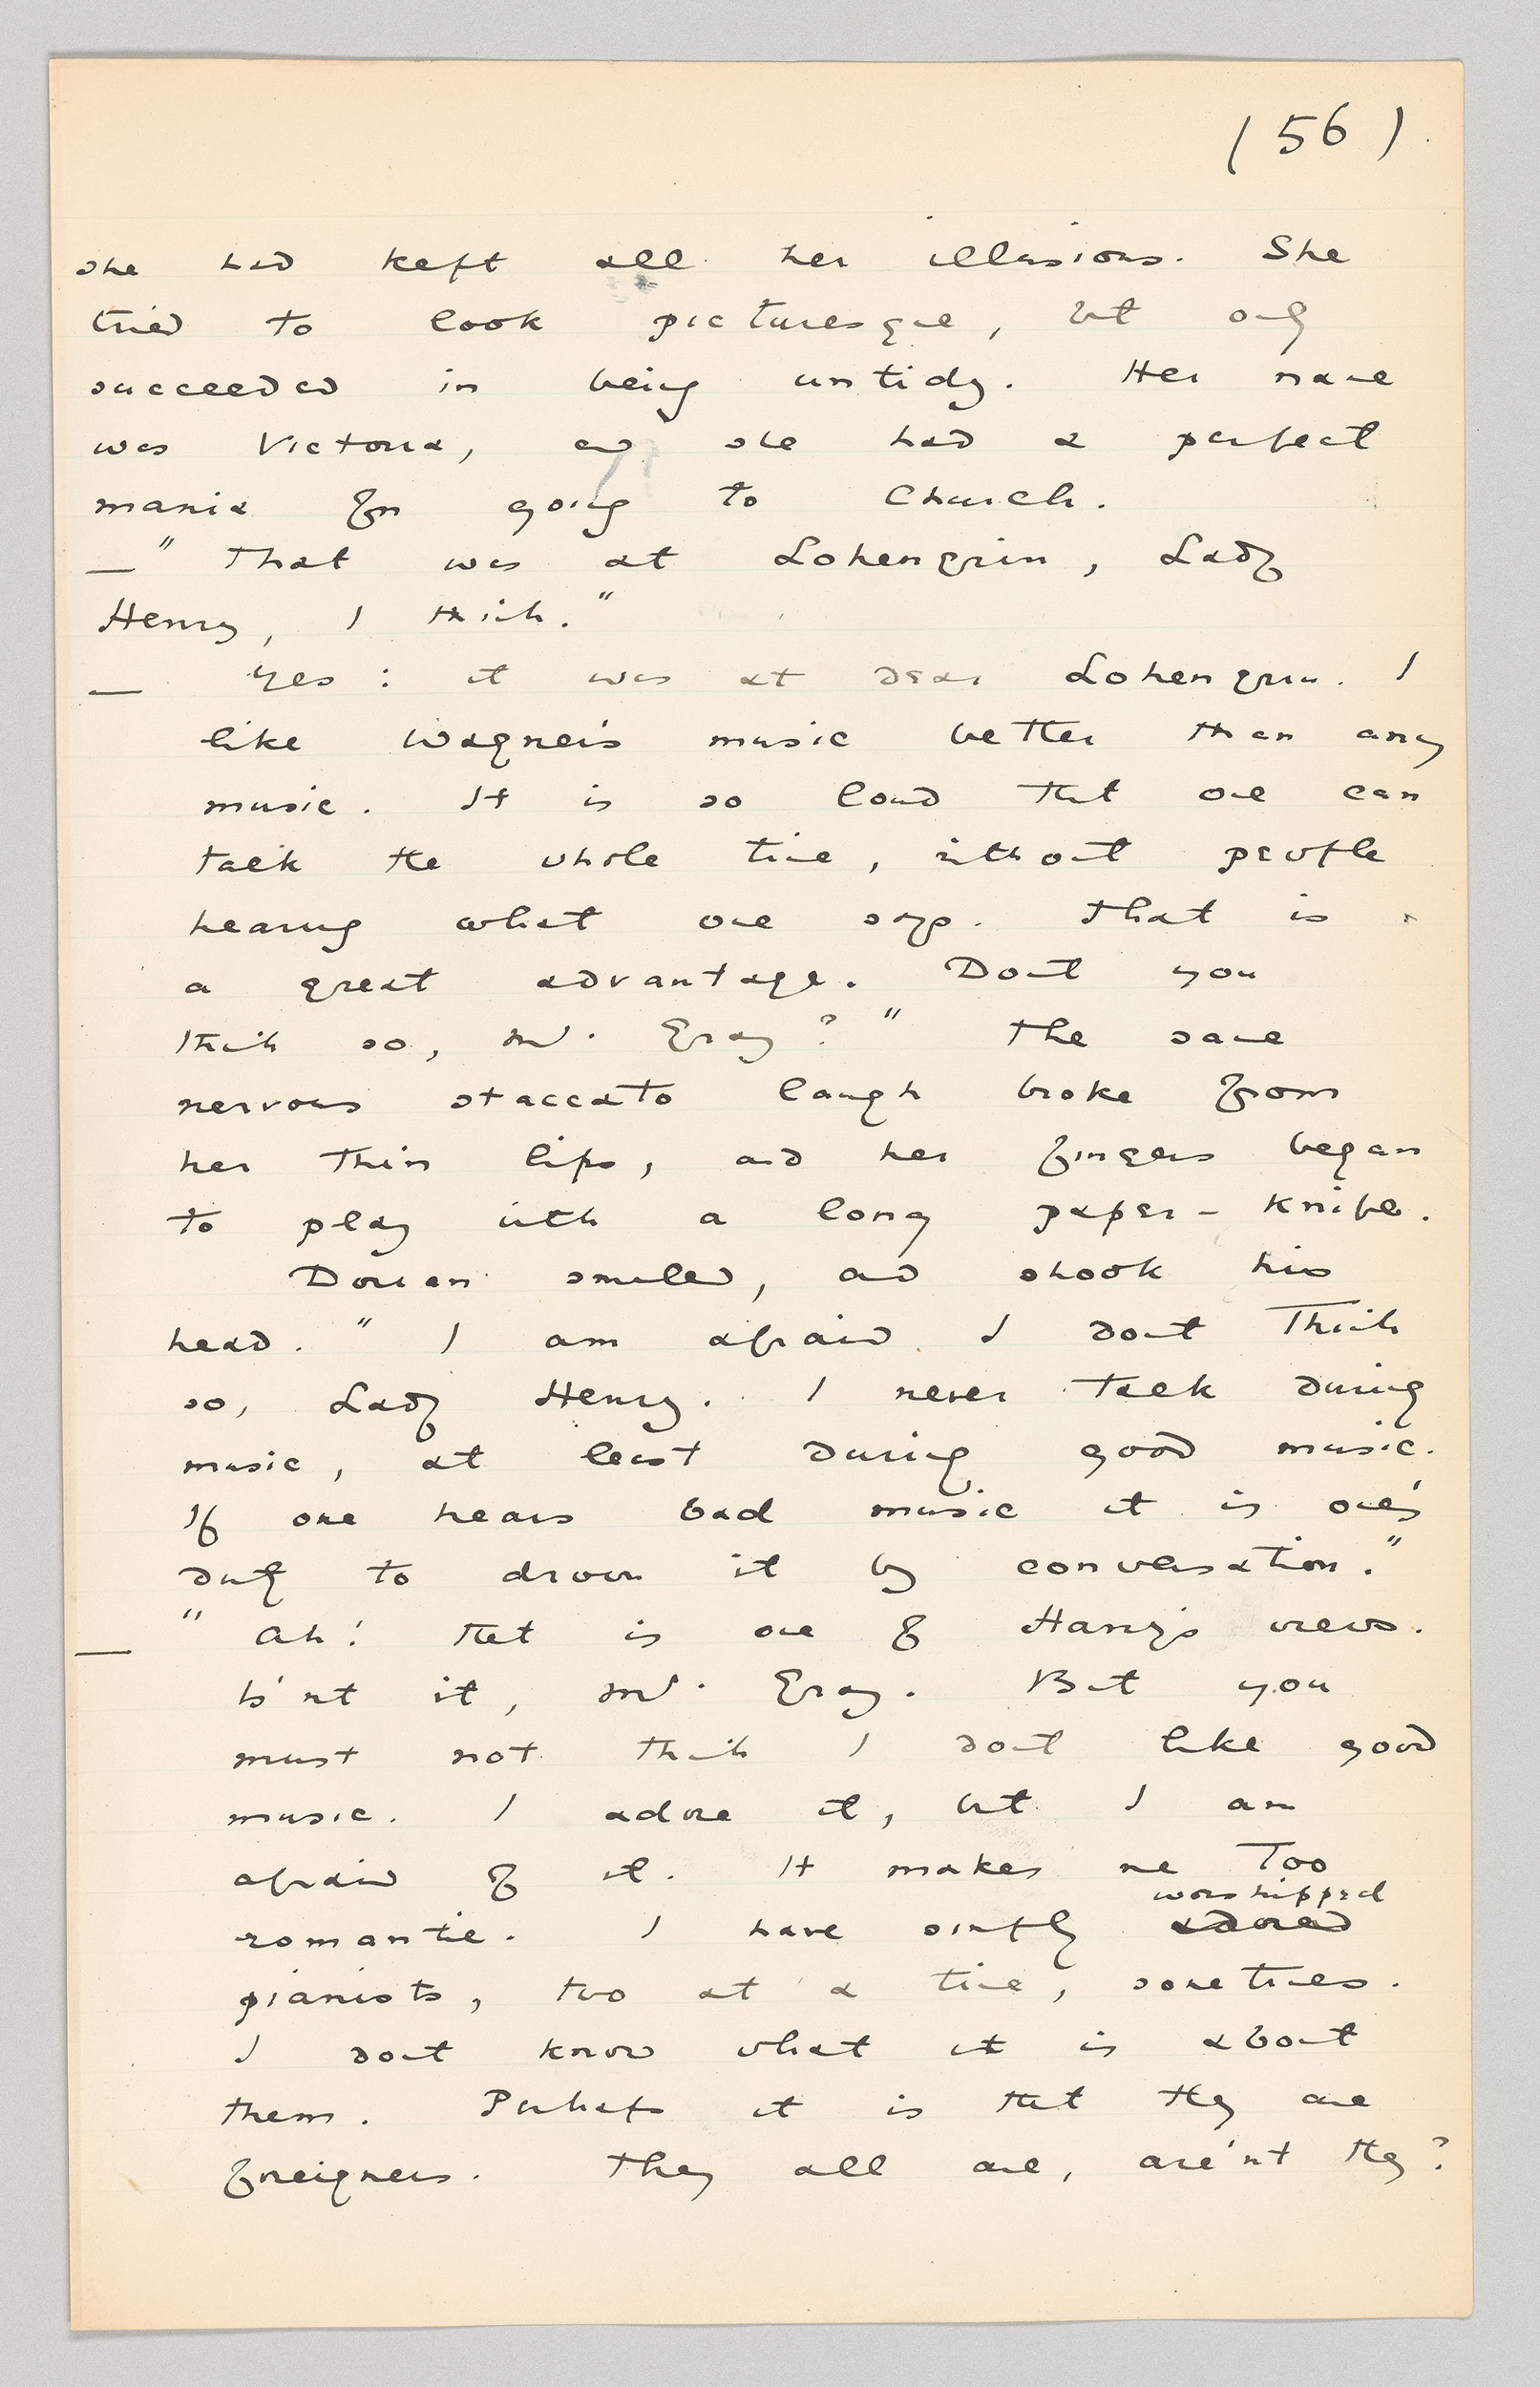 (56).
she had kept all her illusions. She
tried to look picturesque, but only
succeeded in being untidy. Her name
was Victoria, and she had a perfect
mania for going to Church.
— "That was at Lohengrin, Lady
Henry, I think."
— Yes: it was at dear Lohengrin. I
like Wagner's music better than any
music. It is so loud that one can
talk the whole time, without people
hearing what one says. That is
a great advantage. Dont you
think so, Mr. Gray?" The same
nervous staccato laugh broke from
her thin lips, and her fingers began
to play with a long paper-knife.
Dorian smiled, and shook his
head. "I am afraid I dont think
so, Lady Henry. I never talk during
music, at least during good music.
If one hears bad music it is one's
duty to drown it by conversation."
— "Ah! that is one of Harry's views.
Is'nt it, Mr. Gray. But you
must not think I dont like good
music. I adore it, but I am
afraid of it. It makes me too
worshipped
romantic. I have simply adored
pianists, two at a time, sometimes.
I dont know what it is about
them. Perhaps it is that they are
foreigners. They all are, are'nt they?